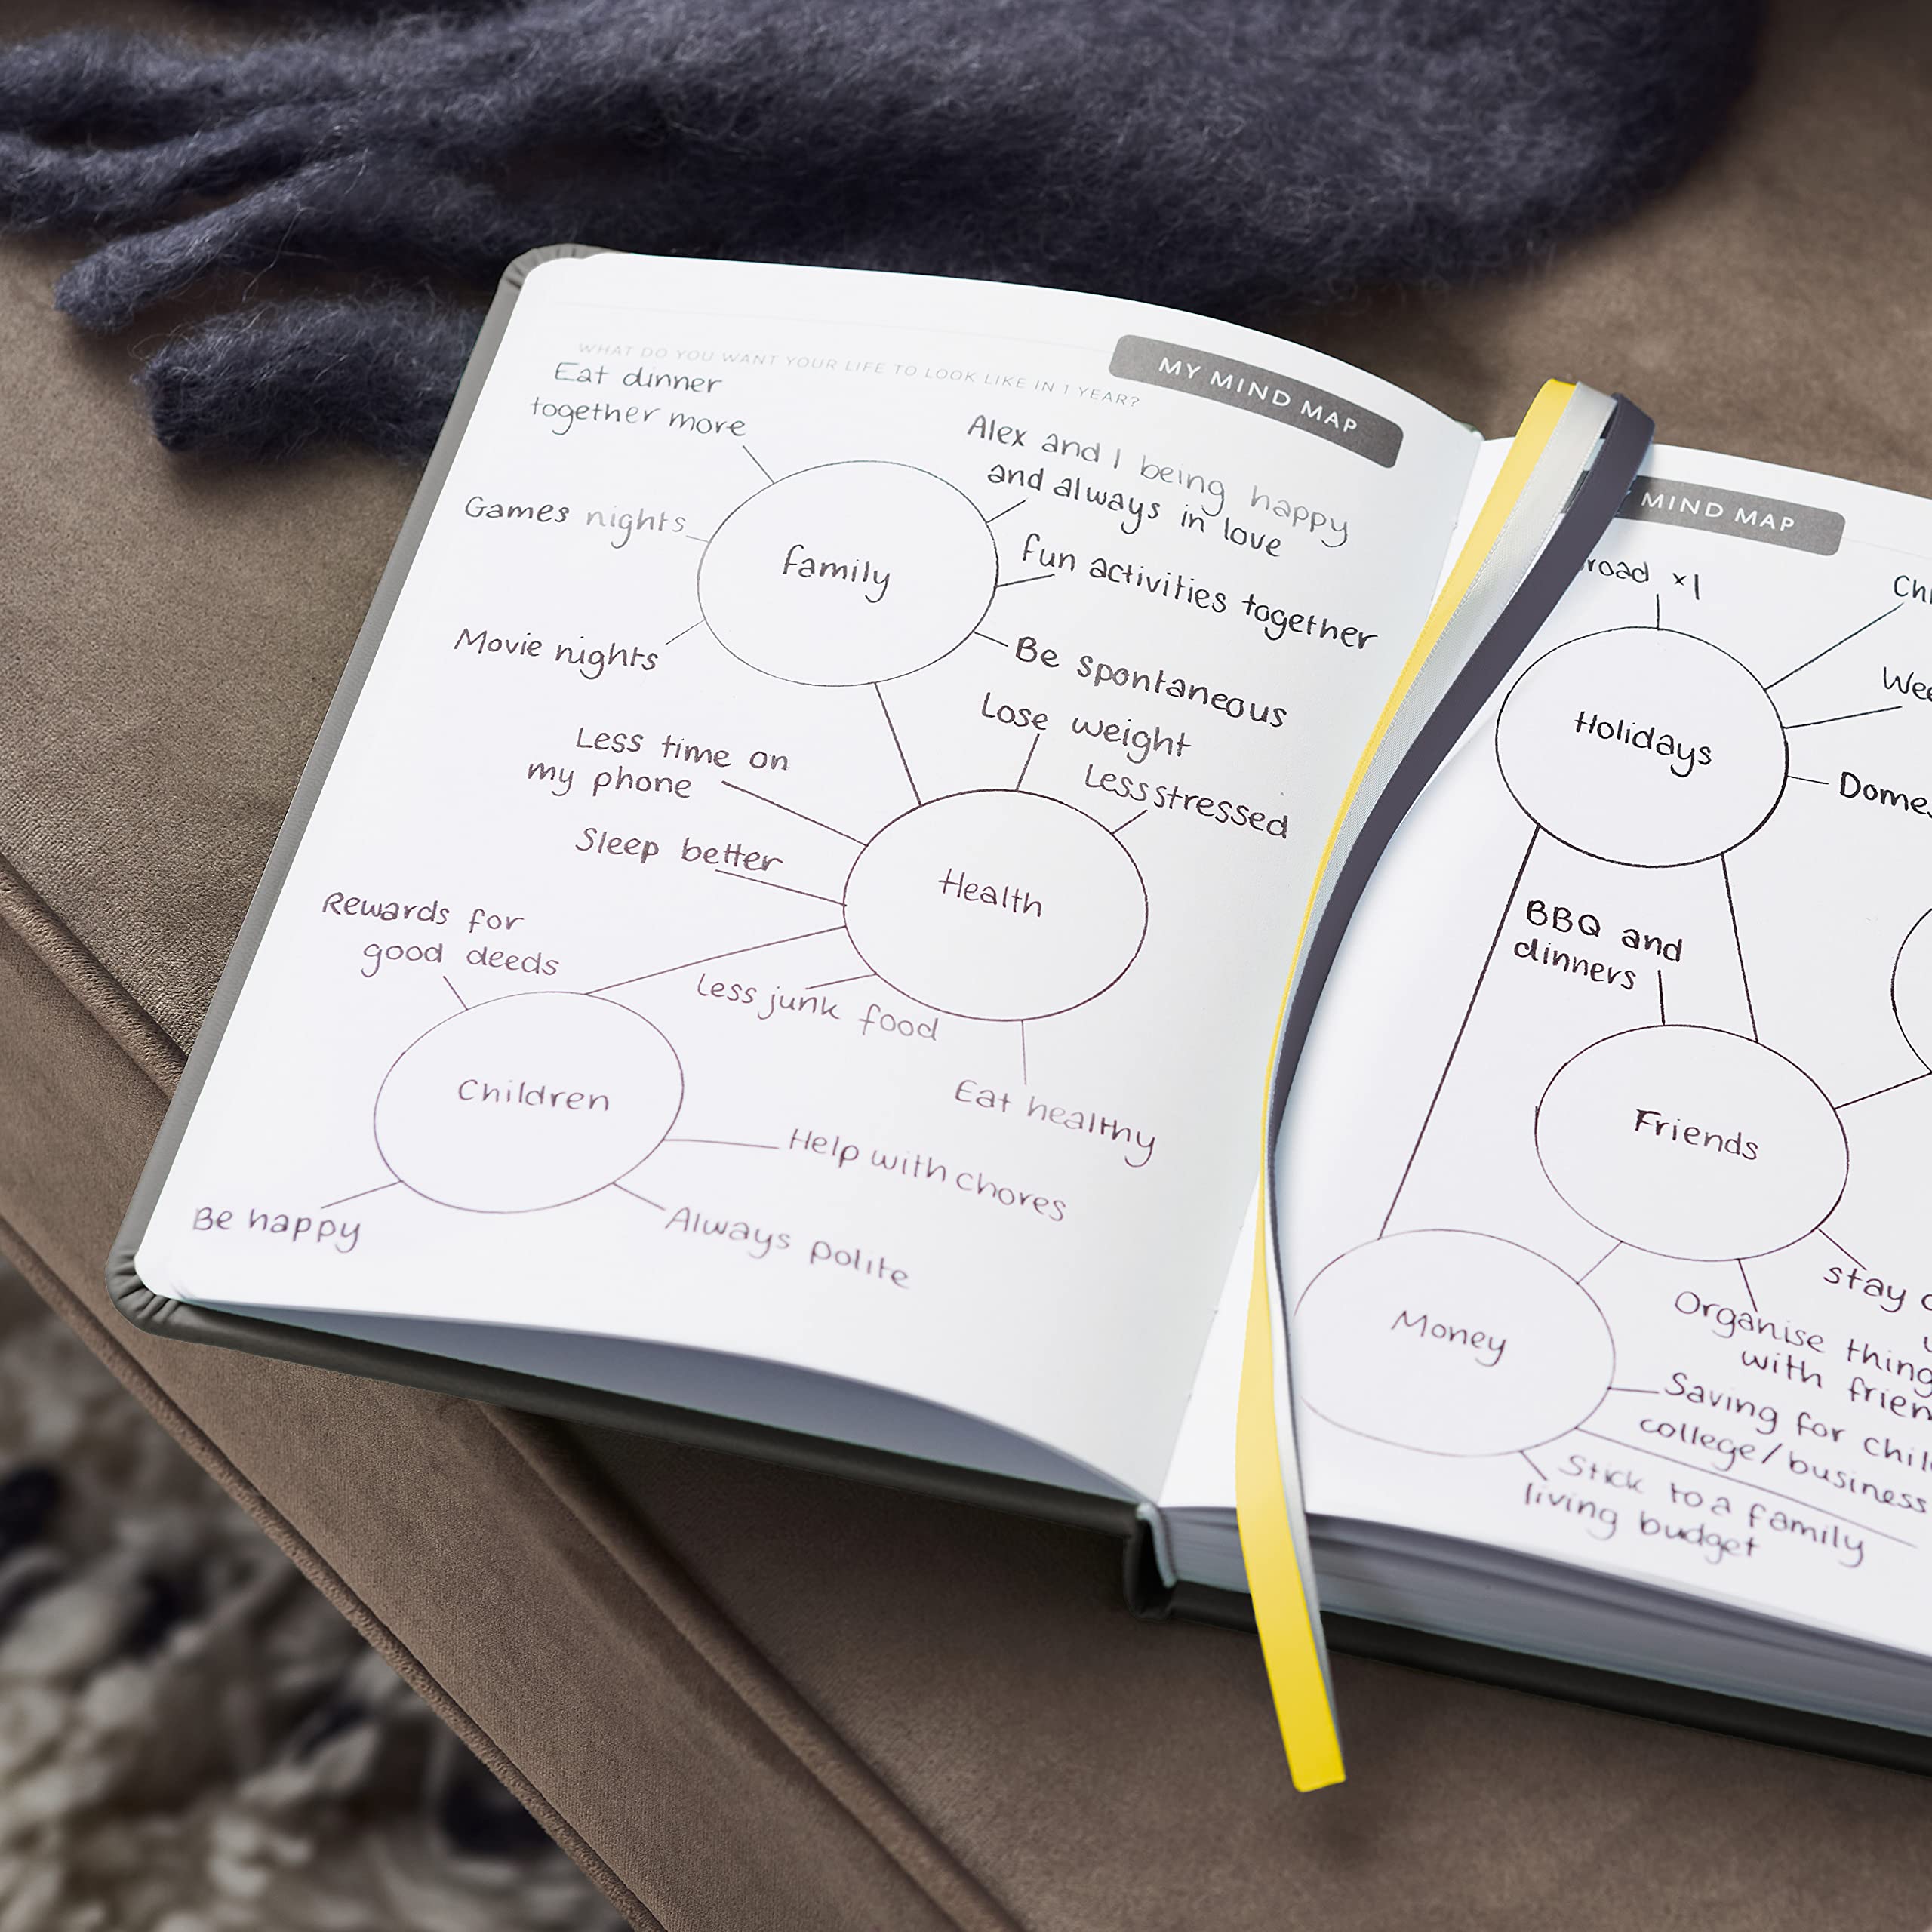 MY MIND MAP
WHAT DO YOU WANT YOUR LIFE TO LOOK LIKE IN 1 YEAR?
Eat dinner
together more
Alex and I being happy
and always in love
Games nights
family
fun activities together
Movie nights
Be spontaneous
Less time on
my phone
Lose weight
Less stressed
Sleep better
Health
Rewards for
good deeds
Less junk food
Eat healthy
Children
Help with chores
Be happy
Always polite
MIND MAP
x1
Holidays
BBQ and
dinners
Friends
stay
Organise
with
Money
Saving for
college/business
Stick to a family
living budget